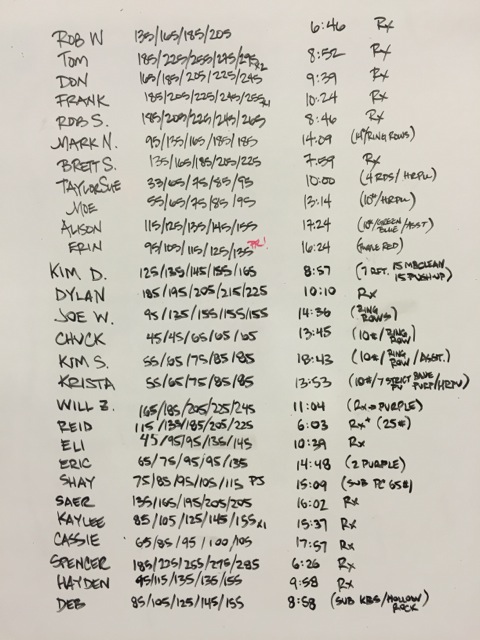 ROB W 135/165/185/205 6:46 Rx
TOM 185/225/255/275/295x2 8:52 Rx
DON 165/185/205/225/245 9:39 Rx
FRANK 185/205/225/245/255x1 10:24 Rx
ROB S. 185/205/225/245/265 8:46 Rx
MARK N. 95/135/165/185/185 14:09 (14#/RING ROWS)
BRETT S. 135/165/185/205/225 7:59 Rx
TAYLORSUE 33/65/75/85/95 10:00 (4 RDS/HRPU)
MOE 55/65/75/85/95 13:14 (10#/HRPU)
ALISON 115/125/135/145/155 17:24 (10#/GREEN BLUE/ASST)
ERIN 95/105/115/125/135 PR! 16:24 (RED)
KIM D. 125/135/145/155/165 8:57 (7 RFT. 15 MBCLEAN 15 PUSHUP)
DYLAN 185/195/205/215/225 10:10 Rx
JOE W. 95/135/155/155/155 14:36 (RING ROWS)
CHUCK 45/45/65/65/65 13:45 (10#/RING ROW)
KIM S. 55/65/75/85/85 18:43 (10#/RING ROW/ASST.)
KRISTA 55/65/75/85/85 13:53 (10#/7 STRICT PU PURP/HRPU)
WILL Z. 165/185/205/225/245 11:04 (Rx PURPLE)
REID 115/135/185/205/225 6:03 Rx+ (25#)
ELI 45/95/95/135/145 10:39 Rx
ERIC 65/75/95/95/135 14:48 (2 PURPLE)
SHAY 75/85/95/105/115 PJ 15:09 (SUB PC 65#)
SAER 135/165/195/205/205 16:02 Rx
KAYLEE 85/105/125/145/155x1 15:37 Rx
CASSIE 65/85/95/100/105 17:57 Rx
SPENCER 185/225/255/275/285 6:26 Rx
HAYDEN 95/115/135/135/155 9:58 Rx
DEB 85/105/125/145/155 8:58 (SUB KBS/HOLLOW ROCK